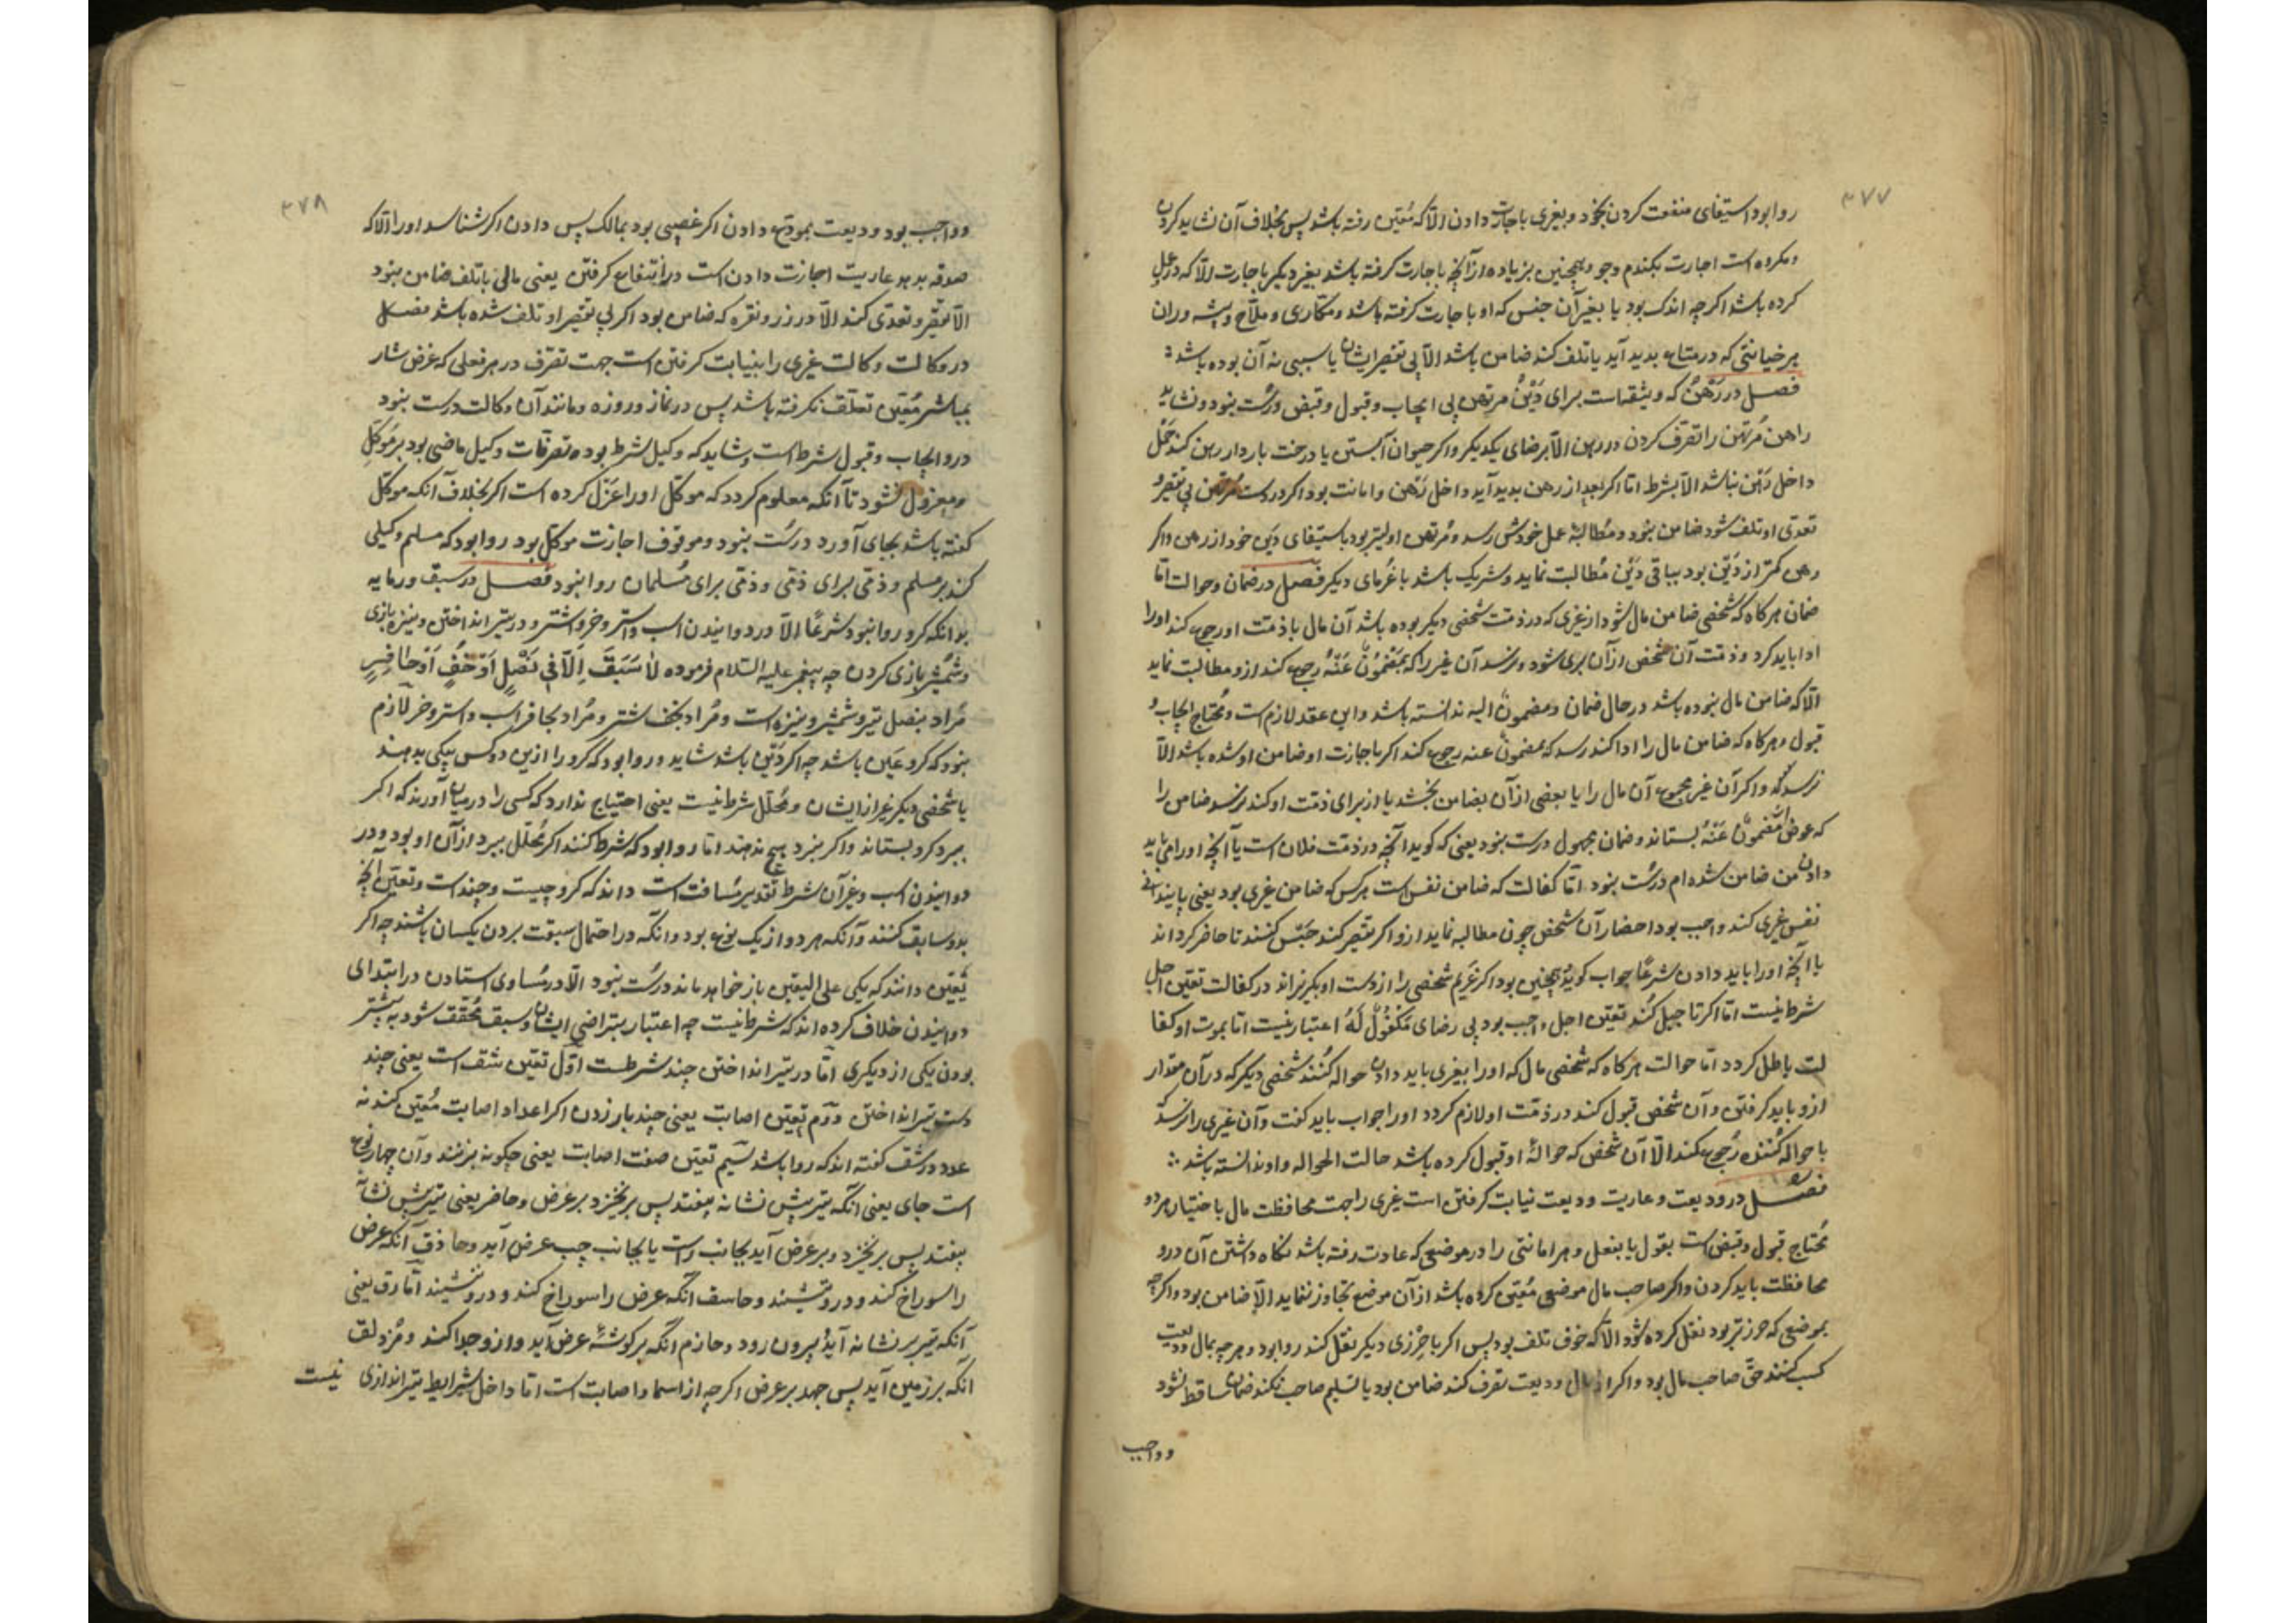 ۳۷۷
روا بود استیفای منفعت کردن بخود و بغیری باجارت دادن الّا که مُعیّن رفته باشد پس بخلاف آن نشاید کردن
و مکروه است اجارت بکندم وجو و همچنین بزیاده از آنچه باجارت کرفته باشد بغیر دیکر باجارت الّا که در عمل
کرده باشد اکرچه اندک بود یا بغیر آن جنس که او باجارت کرفته باشد و مکاری و ملّاح و پیشه وران
هر خیانتی که در متاع بدید آید یا تلف کند ضامن باشد الّا بی تقصیر ایشان یا سببی نه آن بوده باشد
فصل در رَهْن که وثیقه است برای دَیْنُ مرتهن بی ایجاب و قبول و قبض درست نبود و نشاید
راهن مُرتهن را تصّرف کردن در رهن الّا برضای یکدیکر و اکر حیوان آبستن یا درخت باردار رهن کند حَمْل
داخل رَهْن نباشد الّا بشرط امّا اکر بعد از رهن بدید آید داخل رَهْن و امانت بود اکر در دست مُرتهن بی تقصیر و
تعدّی او تلف شود ضامن نبود و مُطالبهٔ عمل خودش رسد و مُرتهن اولیتر بود باستیفای دَین خود از رهن و اکر
رهن کمتر از دَیْن بود بباقی دَیْن مُطالبت نماید و شریک باشد با غُرمای دیکر فصل در ضمان و حوالت امّا
ضمان هرکاه که شخصی ضامن مال شود از غیری که در ذمّت شخصی دیکر بوده باشد آن مال با ذمّت او رجوع کند او را
ادا باید کرد و ذمّت آن شخص از آن بری شود و نرسد آن غیر را که بمَضْمُونٌ عَنْهُ رجوع کند ازو مطالبت نماید
الّا که ضامن مال نبوده باشد در حال ضمان و مضمونٌ الیه ندانسته باشد و این عقد لازم است و مُحتاج ایجاب و
قبول و هرکاه که ضامن مال را ادا کند رسد که بمضمونٌ عنه رجوع کند اکر باجازت او ضامن او شده باشد الّا
نرسدش و اکر آن غیر مجموع آن مال را یا بعضی از آن بضامن بخشد یا از برای ذمّت او کند نرسد ضامن را
که عوض از مَضْمُونٌ عَنْهُ بستاند و ضمان مجهول درست نبود یعنی که کوید آنچه در ذمّت فلان است یا آنچه او را می باید
دادن من ضامن شده ام درست نبود امّا کفالت که ضامن نفس است هرکس که ضامن غیری بود یعنی پایندانی
نفس غیری کند واجب بود احضار آن شخص چون مطالبه نماید ازو اکر تقصیر کند حَبْس کنند تا حاضر کرداند
یا آنچه او را باید دادن شرعًا جواب کوید و همچنین بود اکر غَریم شخصی را از دست او بکریزاند در کفالت تعیّن اجل
شرط نیست امّا اکر تاجیل کُند تعیّن اجل واجب بود بی رضای مَکْفُولٌ لَهُ اعتبار نیست امّا بموت او کفا
لت باطل کردد امّا حوالت هرکاه که شخصی مال که او را بغیری باید دادن حواله کُنند شخصی دیکر که در آن مقدار
ازو باید کرفتن و آن شخص قبول کند در ذمّت او لازم کردد او را جواب باید کفت و آن غیری را نرسد که
با حواله کُننده رُجوع کند الّا آن شخص که حوالهٔ او قبول کرده باشد حالت الحواله و او ندانسته باشد
فصل در ودیعت و عاریت ودیعت نیابت کرفتن است غیری را جهت محافظت مال باختیار هر دو
مُحتاج قبول و قبض است بقول یا بفعل و هر امانتی را در موضعی که عادت رفته باشد نکاه داشتن آن در و
محافظت باید کردن و اکر صاحب مال موضعی مُعیّن کرده باشد از آن موضع تجاوز ننماید الّا ضامن بود و اکرچه
بموضعی که حرزتر بود نقل کرده شود الّا که خوف تلف بود پس اکر با حِرْزی دیکر نقل کند روا بود و هرچه بمال ودیعت
کسب کنند حقّ صاحب مال بود و اکر از مال ودیعت تصرف کند ضامن بود یا تسلیم صاحب نکند ضمان ساقط نشود
و واجب
۳۷۸
و واجب بود ودیعت بمودِع دادن اکر غصبی بود بمالک پس دادن اکر شناسد او را الّا که
صدقه بدهد عاریت اجازت دادن است در انتفاع کرفتن یعنی مالی باتلف ضامن نبود
الّا بتقصیر و تعدّی کند الّا در زر و نقره که ضامن بود اکر بی تقصیر او تلف شده باشد فصل
در وکالت وکالت غیری را بنیابت کرفتن است جهت تصّرف در هر فعلی که غرض شارع
بمباشر مُعیّن تعلّق نکرفته باشد پس در نماز و روزه و مانند آن وکالت درست نبود
درو ایجاب و قبول شرط است و شاید که وکیل بشرط بود و تصرفات وکیل ماضی بود بر مُوَکّل
و معزول نشود تا آنکه معلوم کردد که موکّل او را عَزل کرده است اکر بخلاف آنکه موکّل
کفته باشد بجای آورد درست نبود و موقوف اجازت موکّل بود روا بود که مسلم وکیلی
کند بر مسلم و ذمّی برای ذمّی و ذمّی برای مُسلمان روا نبود فصل در سبق و رمایه
بدانکه کرو روا نبود شرعًا الّا در دوانیدن اسب و استر و خر و اشتر و در تیر انداختن و نیزه بازی
و شمشیر بازی کردن چه پیغمبر علیه السّلام فرموده لا سَبَقَ اِلّا فی نَصْلٍ اَوْ خُفٍّ اَوْ حافِرٍ
مُراد بنصل تیر و شمشیر و نیزه است و مُراد بخف اشتر و مُراد بحافر اسب و استر و خر لازم
نبود که کرو عَین باشد چه اکر دَیْن باشد شاید و روا بود که کرو را ازین دو کس یکی بدهند
یا شخصی دیکر غیر از ایشان و مُحلّل شرط نیست یعنی احتیاج ندارد که کسی را در میان آورند که اکر
ببرد کرو بستاند و اکر نبرد هیچ ندهند امّا روا بود که شرط کنند اکر مُحلّل ببرد از آن او بود و در
دوانیدن اسب و غیر آن شرط تقدیر مُسافت است دانند که کرو چیست و چند است و تعیّن آنچه
بدو سابق کنند و آنکه هر دو از یک نوع بود و آنکه در احتمال سبقت بردن یکسان باشند چه اکر
یَقین دانند که یکی علی الیقین باز خواهد ماند درست نبود الّا در مُساوی استادن در ابتدای
دوانیدن خلاف کرده اند که شرط نیست چه اعتبار بتراضی ایشان و سبق مُحقّق شود به پیشتر
بودن یکی از دیکری امّا در تیر انداختن چند شرط است اوّل تعیّن رشق است یعنی چند
دست تیر انداختن دوّم تعیّن اصابت یعنی چند بار زدن اکر اعداد اصابت مُعیّن کنند نه
عدد رشق کفته اند که روا باشد سیّم تعیّن صفت اصابت یعنی چکونه بزنند و آن چهار نوع
است جای یعنی آنکه تیر پیش نشانه بیفتد پس برخیزد بر غرض و حاضر یعنی تیر پیش نشانه
بیفتد پس برخیزد و بر عرض آید بجانب راست یا بجانب چپ عرض آید و حاذق آنکه عرض
را سوراخ کند و درو نشیند و حاسف آنکه عرض را سوراخ کند و درو نشیند امّا رق یعنی
آنکه تیر بر نشانه آید و بیرون رود و حازم آنکه بر کوشهٔ عرض آید و ازو جدا کند و مُزدلف
آنکه بر زمین آید پس جهد بر عرض اکرچه از اسماء اصابت است امّا داخل شرایط تیر اندازی نیست